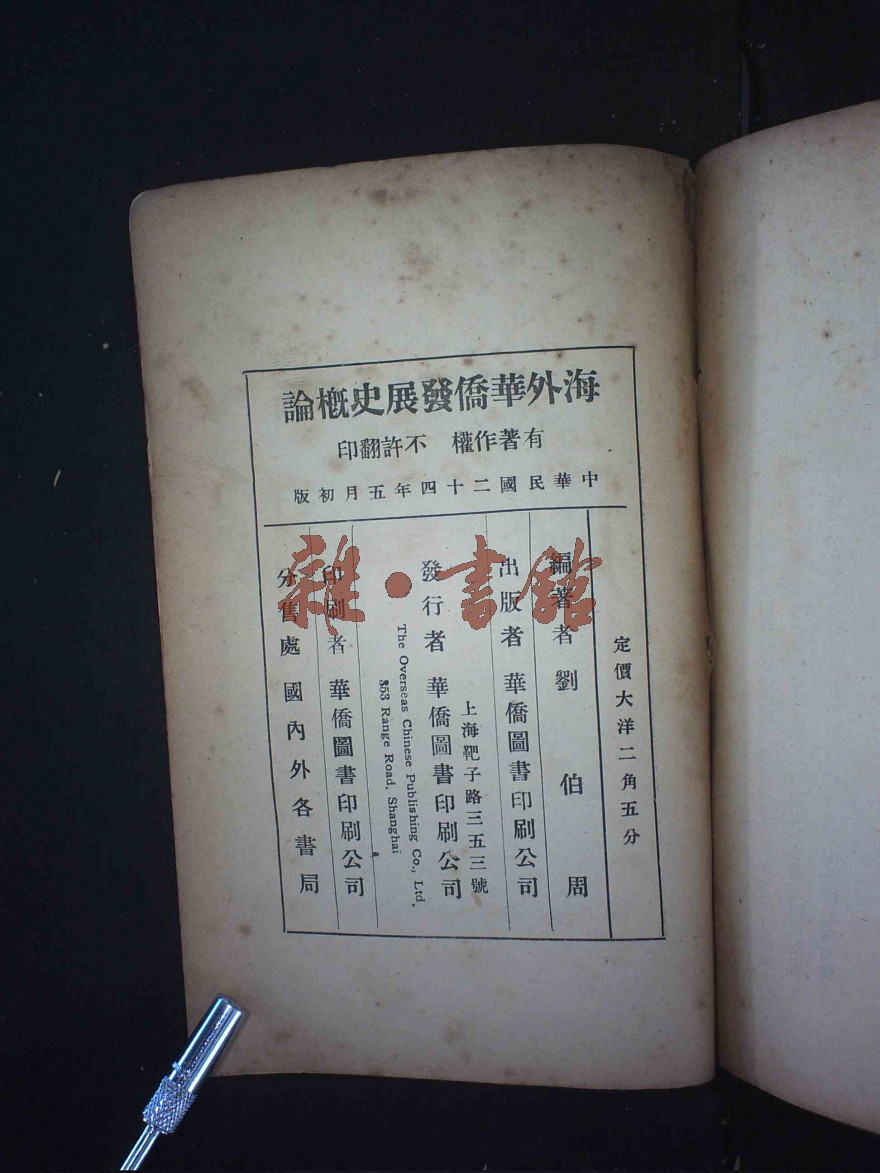 海外華僑發展史概論
有著作權 不許翻印
中華民國二十四年五月初版
定價大洋二角五分
編著者 劉伯周
出版者 華僑圖書印刷公司
上海靶子路三五三號
發行者 華僑圖書印刷公司
The Overseas Chinese Publishing Co., Ltd.
353 Range Road, Shanghai
印刷者 華僑圖書印刷公司
分售處 國內外各書局
雜·書館